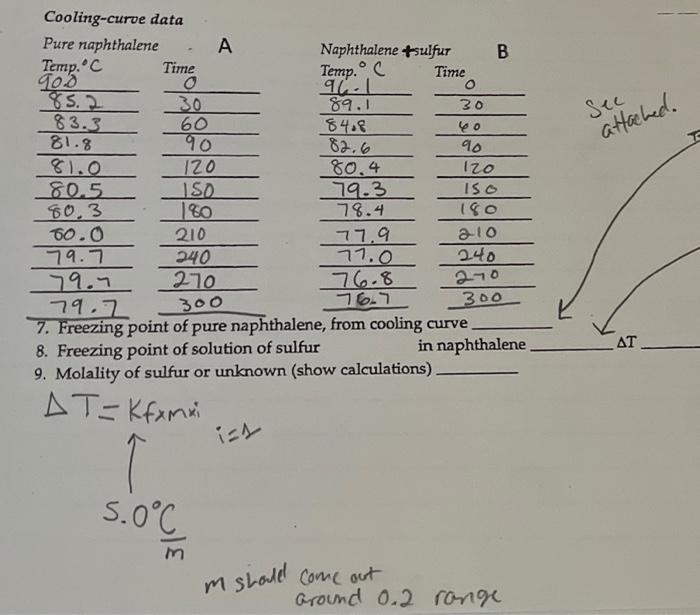 Cooling-curve data
Pure naphthalene A Naphthalene +sulfur B
Temp.°C Time Temp.° C Time
90.0 0 96.1 0
85.2 30 89.1 30
83.3 60 84.8 60
81.8 90 82.6 90
81.0 120 80.4 120
80.5 150 79.3 150
80.3 180 78.4 180
80.0 210 77.9 210
79.7 240 77.0 240
79.7 270 76.8 270
79.7 300 76.7 300
See
attached.
7. Freezing point of pure naphthalene, from cooling curve
8. Freezing point of solution of sulfur in naphthalene ΔT
9. Molality of sulfur or unknown (show calculations)
ΔT = Kfxmxi
i=1
5.0°C
m
m should come out
around 0.2 range